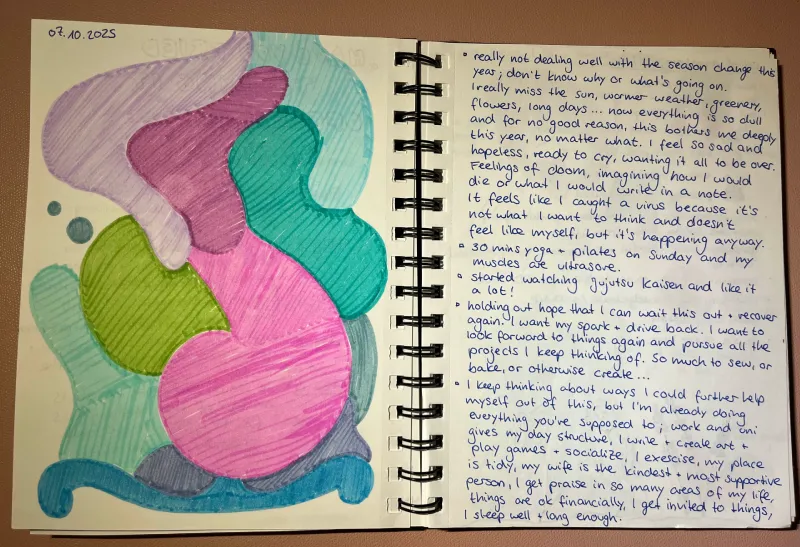 07.10.2025
• really not dealing well with the season change this
year; don't know why or what's going on.
I really miss the sun, warmer weather, greenery,
flowers, long days... now everything is so dull
and for no good reason, this bothers me deeply
this year, no matter what. I feel so sad and
hopeless, ready to cry, wanting it all to be over.
Feelings of doom, imagining how I would
die or what I would write in a note.
It feels like I caught a virus because it's
not what I want to think and doesn't
feel like myself, but it's happening anyway.
• 30 mins yoga + pilates on Sunday and my
muscles are ultrasore.
• started watching Jujutsu Kaisen and like it
a lot!
• holding out hope that I can wait this out + recover
again. I want my spark + drive back. I want to
look forward to things again and pursue all the
projects I keep thinking of. So much to sew, or
bake, or otherwise create...
• I keep thinking about ways I could further help
myself out of this, but I'm already doing
everything you're supposed to; work and uni
gives my day structure, I write + create art +
play games + socialize, I exercise, my place
is tidy, my wife is the kindest + most supportive
person, I get praise in so many areas of my life,
things are ok financially, I get invited to things,
I sleep well + long enough.